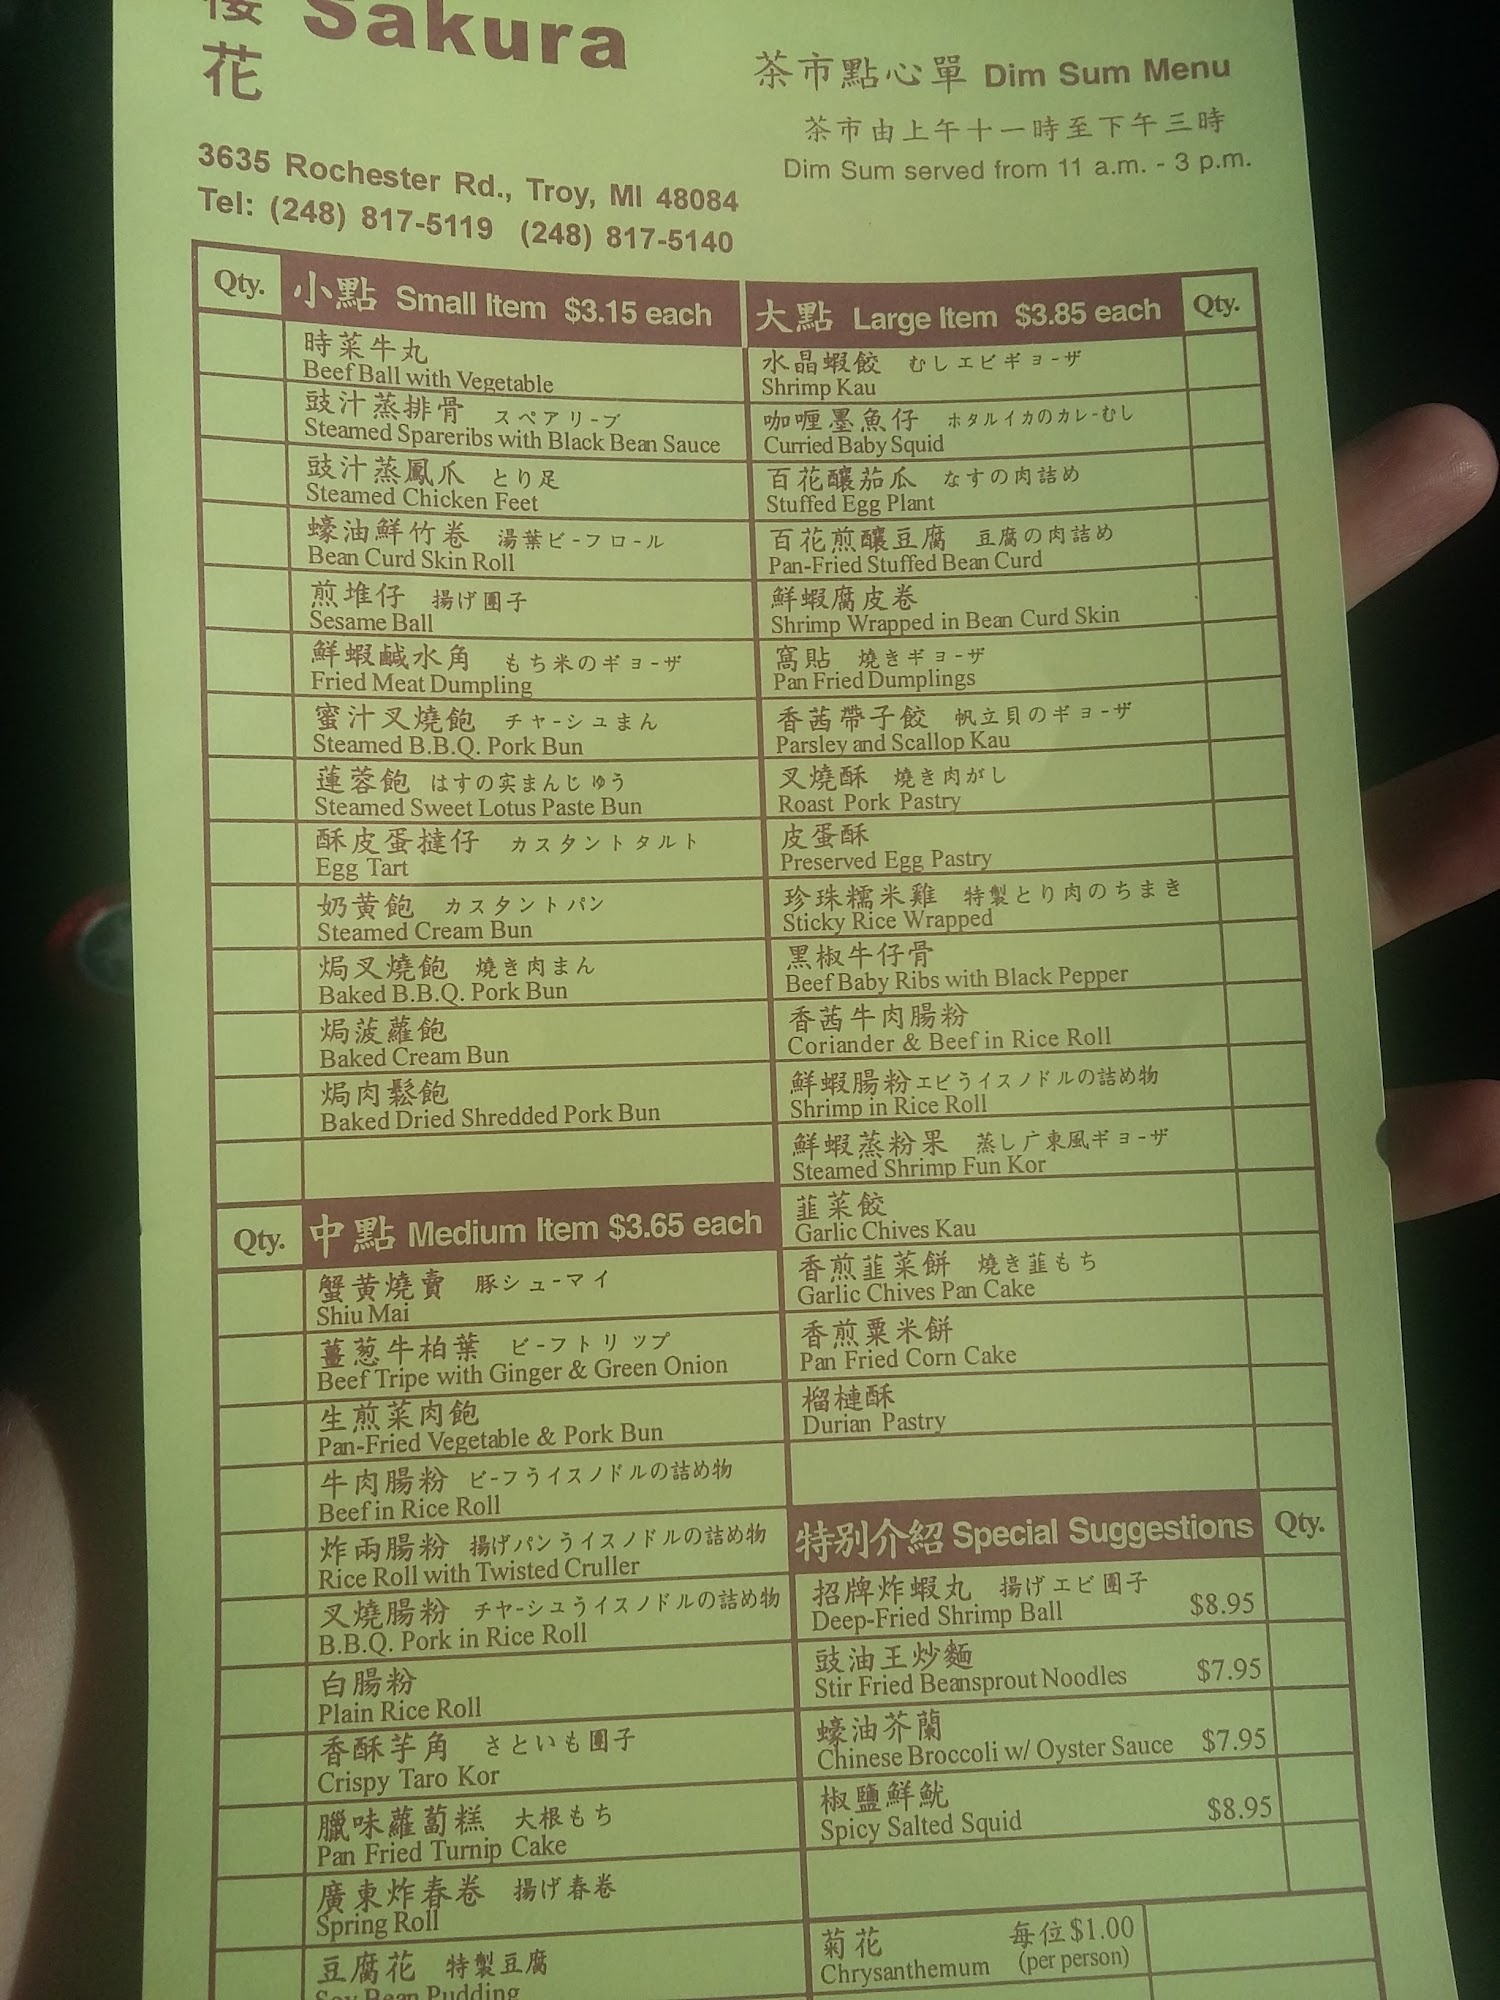 花 Sakura
3635 Rochester Rd., Troy, MI 48084
Tel: (248) 817-5119 (248) 817-5140
茶市點心單 Dim Sum Menu
茶市由上午十一時至下午三時
Dim Sum served from 11 a.m. - 3 p.m.
Qty. 小點 Small Item $3.15 each
時菜牛丸
Beef Ball with Vegetable
豉汁蒸排骨 スペアリ-ブ
Steamed Spareribs with Black Bean Sauce
豉汁蒸鳳爪 とり足
Steamed Chicken Feet
蠔油鮮竹卷 湯葉ビ-フロ-ル
Bean Curd Skin Roll
煎堆仔 揚げ團子
Sesame Ball
鮮蝦鹹水角 もち米のギョ-ザ
Fried Meat Dumpling
蜜汁叉燒飽 チャ-シュまん
Steamed B.B.Q. Pork Bun
蓮蓉飽 はすの実まんじゅう
Steamed Sweet Lotus Paste Bun
酥皮蛋撻仔 カスタントタルト
Egg Tart
奶黄飽 カスタントパン
Steamed Cream Bun
焗叉燒飽 燒き肉まん
Baked B.B.Q. Pork Bun
焗菠蘿飽
Baked Cream Bun
焗肉鬆飽
Baked Dried Shredded Pork Bun
Qty. 中點 Medium Item $3.65 each
蟹黄燒賣 豚シュ-マイ
Shiu Mai
薑葱牛柏葉 ビ-フトリップ
Beef Tripe with Ginger & Green Onion
生煎菜肉飽
Pan-Fried Vegetable & Pork Bun
牛肉腸粉 ビ-フうイスノドルの詰め物
Beef in Rice Roll
炸兩腸粉 揚げパンうイスノドルの詰め物
Rice Roll with Twisted Cruller
叉燒腸粉 チヤ-シュうイスノドルの詰め物
B.B.Q. Pork in Rice Roll
白腸粉
Plain Rice Roll
香酥芋角 さといも團子
Crispy Taro Kor
臘味蘿蔔糕 大根もち
Pan Fried Turnip Cake
廣東炸春卷 揚げ春卷
Spring Roll
豆腐花 特製豆腐
Soy Bean Pudding
大點 Large Item $3.85 each Qty.
水晶蝦餃 むしエビギョ-ザ
Shrimp Kau
咖喱墨魚仔 ホタルイカのカレ-むし
Curried Baby Squid
百花釀茄瓜 なすの肉詰め
Stuffed Egg Plant
百花煎釀豆腐 豆腐の肉詰め
Pan-Fried Stuffed Bean Curd
鮮蝦腐皮卷
Shrimp Wrapped in Bean Curd Skin
窩貼 燒きギョ-ザ
Pan Fried Dumplings
香茜帶子餃 帆立貝のギョ-ザ
Parsley and Scallop Kau
叉燒酥 燒き肉がし
Roast Pork Pastry
皮蛋酥
Preserved Egg Pastry
珍珠糯米雞 特製とり肉のちまき
Sticky Rice Wrapped
黑椒牛仔骨
Beef Baby Ribs with Black Pepper
香茜牛肉腸粉
Coriander & Beef in Rice Roll
鮮蝦腸粉 エビうイスノドルの詰め物
Shrimp in Rice Roll
鮮蝦蒸粉果 蒸し广東風ギョ-ザ
Steamed Shrimp Fun Kor
韮菜餃
Garlic Chives Kau
香煎韮菜餅 燒き韮もち
Garlic Chives Pan Cake
香煎粟米餅
Pan Fried Corn Cake
榴槤酥
Durian Pastry
特別介紹 Special Suggestions Qty.
招牌炸蝦丸 揚げエビ團子
Deep-Fried Shrimp Ball $8.95
豉油王炒麵
Stir Fried Beansprout Noodles $7.95
蠔油芥蘭
Chinese Broccoli w/ Oyster Sauce $7.95
椒鹽鮮魷
Spicy Salted Squid $8.95
菊花 每位$1.00
Chrysanthemum (per person)